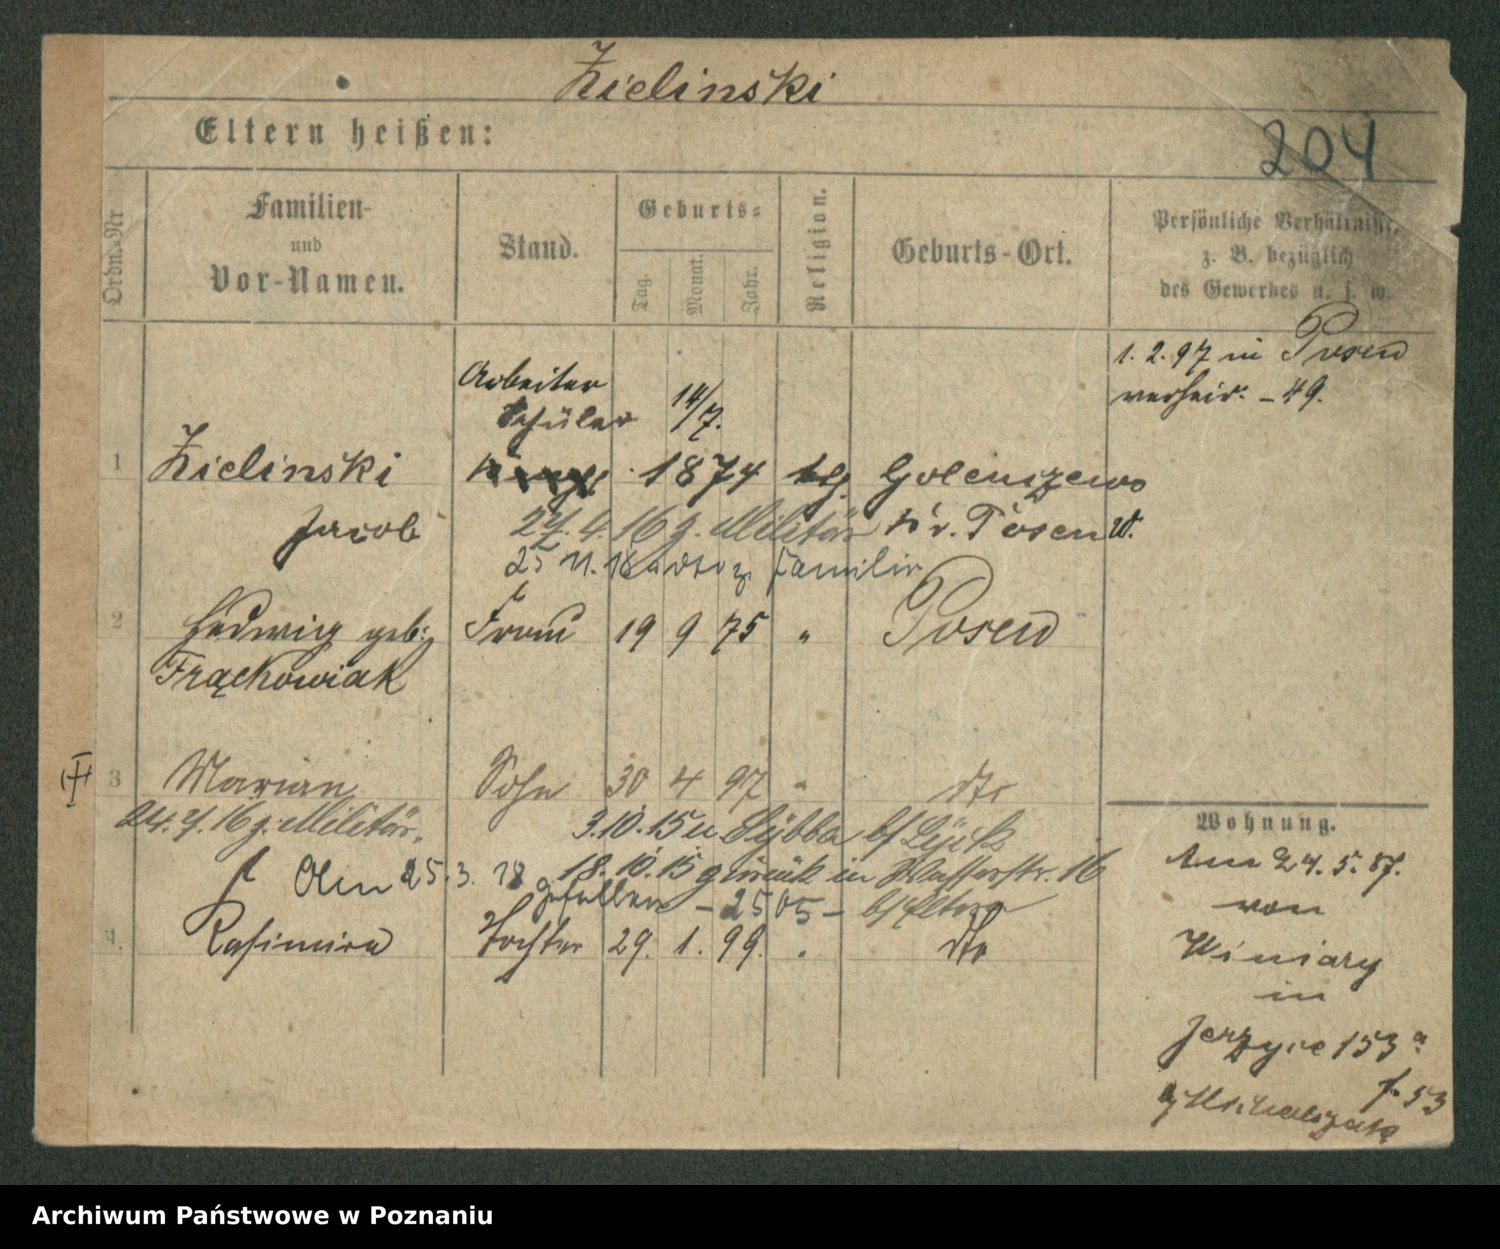 Zielinski
Eltern heißen:
204
Ordn.-Nr
Familien-
und
Vor-Namen.
Stand.
Geburts-
Tag.
Monat.
Jahr.
Religion.
Geburts-Ort.
Persönliche Verhältnisse,
z. B. bezüglich
des Gewerbes u. s. w.
1. 2. 97 in Posen
verheir. - 49.
Arbeiter
Schüler 14/7.
1 Zielinski 1874 Golenczewo
Jacob 27. 4. 16 z. Militär Kr. Posen W.
25 11. 18 Familie
2 Hedwig geb: Frau 19 9 75 " Posen
Frąckowiak
3 Marian Sohn 30 4 97 " dto
24. 7. 16 z. Militär. 3. 10. 15 n Sybba b/ Lyck
† Olm 25. 3. 18 18. 10. 15 zurück in Wasserstr. 16
gefallen - 2505 - b/ Eltern
4. Kasimira Tochter 29. 1. 99. " dto
Wohnung.
Am 24. 5. 87.
von
Winiary
in
Jerzyce 153a
f. 53